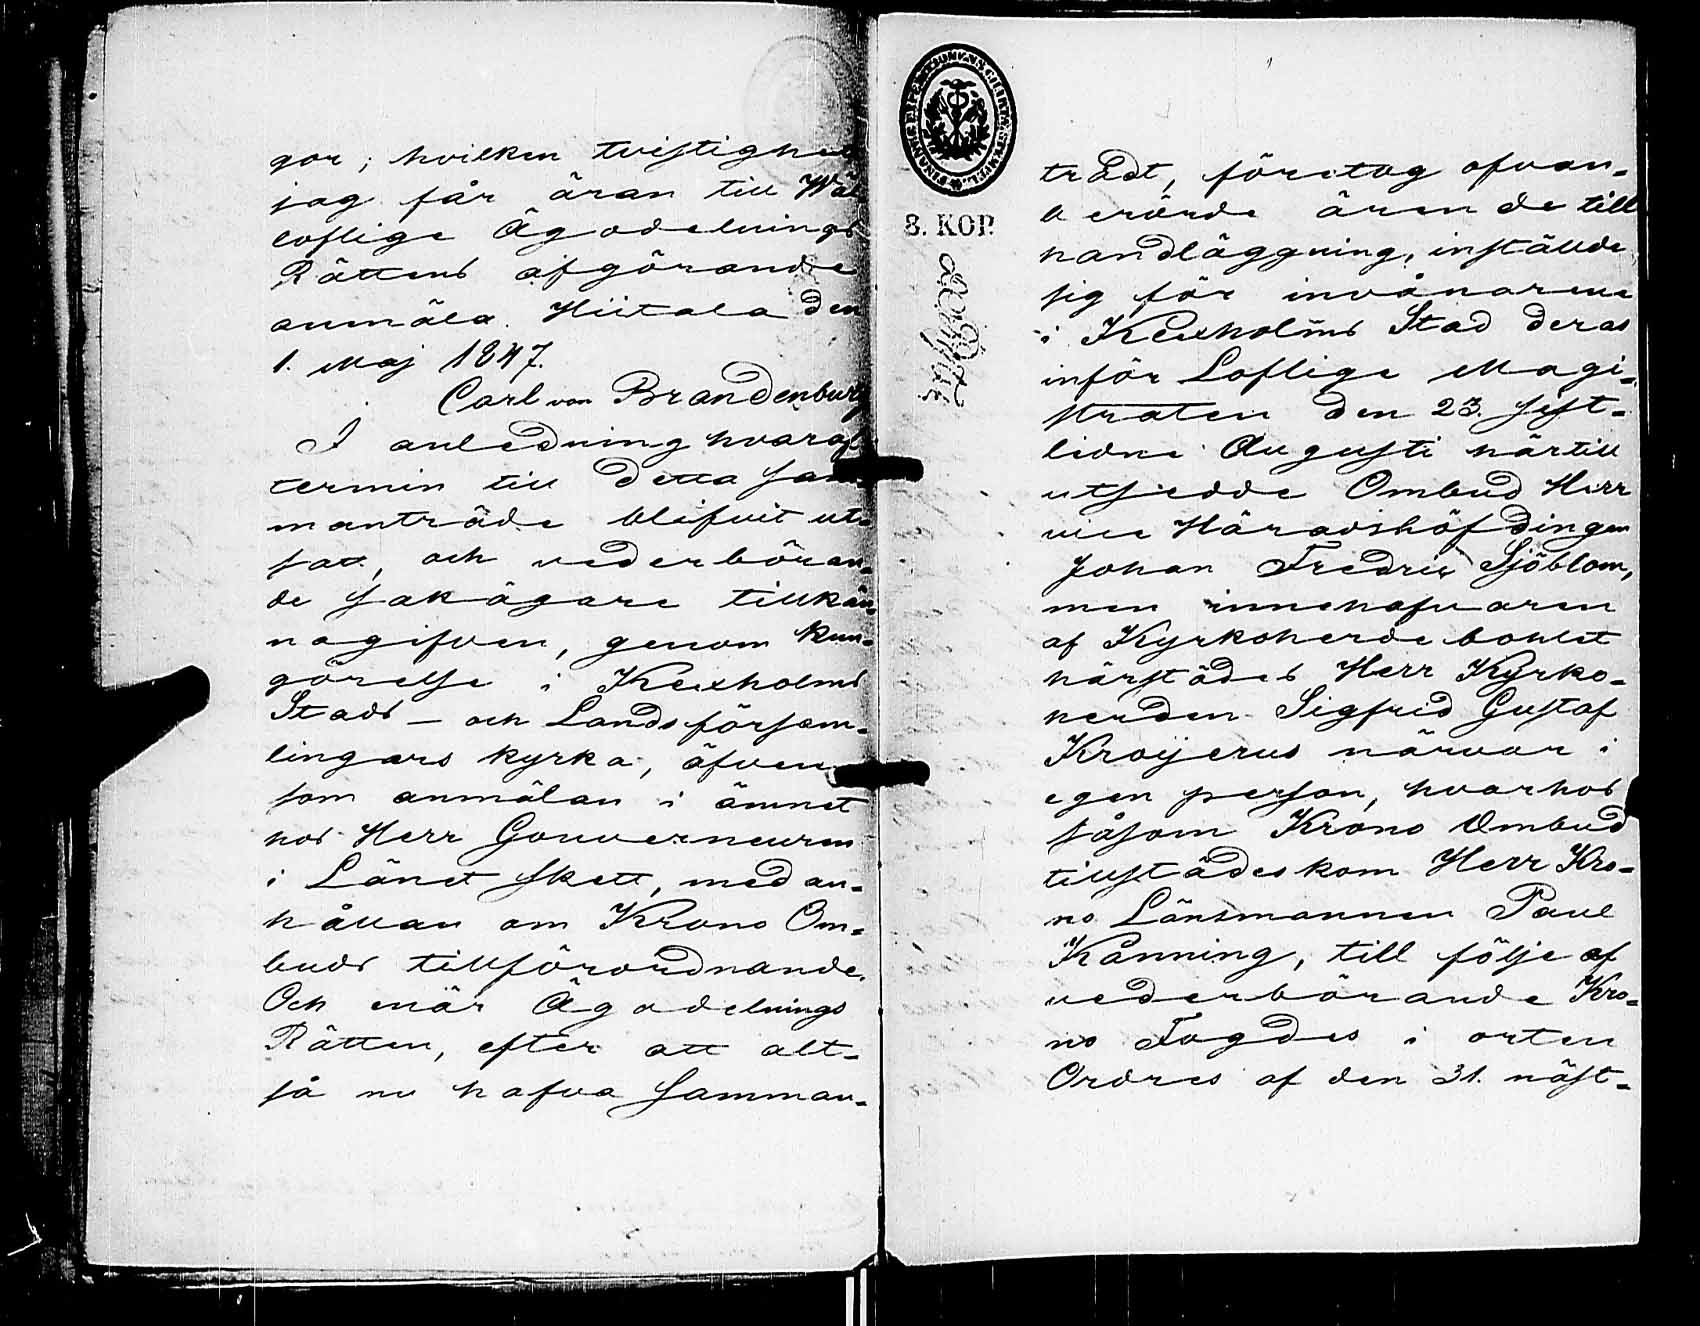 gor; hvilken tvistighet
jag får äran till Wäl
loflige Ägodelnings
Rättens afgörande
anmäla. Hiitala den
1. Maj 1847.
Carl von Brandenburg
I anledning hvaraf
termin till detta sam-
manträde blifvit ut-
satt, och vederböran-
de sakägare tillkän-
nagifven, genom kun-
görelse i Kexholms
Stads – och Landsförsam-
lingars kyrka, äfven
som anmälan i ämnet
hos Herr Gouverneuren
i Länet skett, med an-
hållan om Krono Om-
buds tillförordnande.
Och enär Ägodelnings
Rätten, efter att alt-
så nu hafva samman-
8. KOP.
trädt, företog ofvan-
berörde ärende till
handläggning, instälde
sig för invånarene
i Kexholms Stad deras
inför Loflige Magi-
straten den 23. sist-
lidne Augusti härtill
utsedde Ombud Herr
vice Häradshöfdingen
Johan Fredric Sjöblom,
men innehafvaren
af Kyrkoherde bohlet
härstädes Herr Kyrko-
herden Sigfrid Gustaf
Kroijerus närvar i
egen person, hvarhos
såsom Krono Ombud
tillstädeskom Herr Kro-
no Länsmannen Paul
Kånning, till följe af
vederbörande Kro-
no Fogdes i orten
Ordres af den 31. näst-